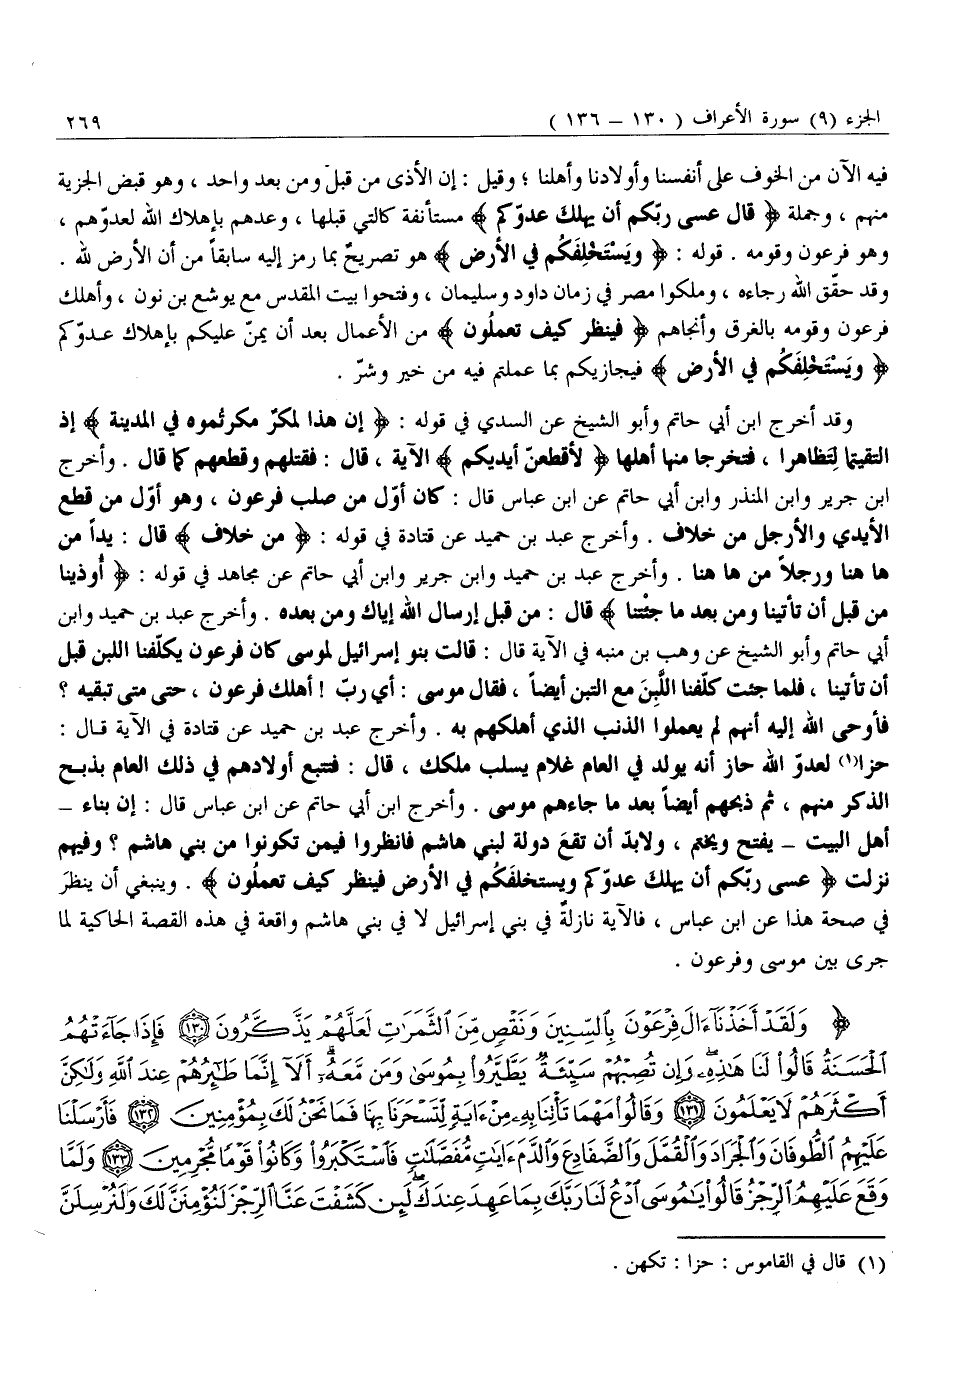 الجزء (٩) سورة الأعراف ( ١٣٠ – ١٣٦ ) ٢٦٩
فيه الآن من الخوف على أنفسنا وأولادنا وأهلنا ؛ وقيل : إن الأذى من قبل ومن بعد واحد ، وهو قبض الجزية
منهم ، وجملة ﴿ قال عسى ربّكم أن يهلك عدوّكم ﴾ مستأنفة كالتي قبلها ، وعدهم بإهلاك الله لعدوّهم ،
وهو فرعون وقومه . قوله : ﴿ ويَسْتَخْلِفَكُم في الأرض ﴾ هو تصريحٌ بما رمز إليه سابقاً من أن الأرض لله .
وقد حقّق الله رجاءه ، وملكوا مصر في زمان داود وسليمان ، وفتحوا بيت المقدس مع يوشع بن نون ، وأهلك
فرعون وقومه بالغرق وأنجاهم ﴿ فينظر كيف تعملُون ﴾ من الأعمال بعد أن يمنّ عليكم بإهلاك عـدوّكم
﴿ ويَسْتَخْلِفَكُم في الأرض ﴾ فيجازيكم بما عملتم فيه من خير وشرّ .
وقد أخرج ابن أبي حاتم وأبو الشيخ عن السدي في قوله : ﴿ إن هذا لمكرٌ مكرتُموه في المدينة ﴾ إذ
التقيتما لِتظاهرا ، فتخرجا منها أهلها ﴿ لأقطعنّ أيديكم ﴾ الآية ، قال : فقتلهم وقطعهم كما قال . وأخرج
ابن جرير وابن المنذر وابن أبي حاتم عن ابن عباس قال : كان أوّل من صلب فرعون ، وهو أوّل من قطع
الأيدي والأرجل من خلاف . وأخرج عبد بن حميد عن قتادة في قوله : ﴿ من خلاف ﴾ قال : يداً من
ها هنا ورجلاً من ها هنا . وأخرج عبد بن حميد وابن جرير وابن أبي حاتم عن مجاهد في قوله : ﴿ أُوذينا
من قبل أن تأتينا ومن بعد ما جئْتنا ﴾ قال : من قبل إرسال الله إياك ومن بعده . وأخرج عبد بن حميد وابن
أبي حاتم وأبو الشيخ عن وهب بن منبه في الآية قال : قالت بنو إسرائيل لموسى كان فرعون يكلّفنا اللبن قبل
أن تأتينا ، فلما جئت كلّفنا اللَّبِنَ مع التبن أيضاً ، فقال موسى : أي ربّ ! أهلك فرعون ، حتى متى تبقيه ؟
فأوحى الله إليه أنهم لم يعملوا الذنب الذي أهلكهم به . وأخرج عبد بن حميد عن قتادة في الآية قـال :
حزا(١) لعدوّ الله حاز أنه يولد في العام غلام يسلب ملكك ، قال : فتتبع أولادهم في ذلك العام بذبـح
الذكر منهم ، ثم ذبحهم أيضاً بعد ما جاءهم موسى . وأخرج ابن أبي حاتم عن ابن عباس قال : إن بناء –
أهل البيت – يفتح ويختم ، ولابدّ أن تقعَ دولة لبني هاشم فانظروا فيمن تكونوا من بني هاشم ؟ وفيهم
نزلت ﴿ عسى ربّكم أن يهلك عدوّكم ويستخلفَكُم في الأرض فينظر كيف تعملُون ﴾ . وينبغي أن ينظرَ
في صحة هذا عن ابن عباس ، فالآية نازلةٌ في بني إسرائيل لا في بني هاشم واقعة في هذه القصة الحاكية لما
جرى بين موسى وفرعون .
﴿ وَلَقَدْ أَخَذْنَآ ءَالَ فِرْعَوْنَ بِٱلسِّنِينَ وَنَقْصٍ مِّنَ ٱلثَّمَرَٰتِ لَعَلَّهُمْ يَذَّكَّرُونَ ١٣٠ فَإِذَا جَآءَتْهُمُ
ٱلْحَسَنَةُ قَالُوا۟ لَنَا هَٰذِهِۦ ۖ وَإِن تُصِبْهُمْ سَيِّئَةٌ يَطَّيَّرُوا۟ بِمُوسَىٰ وَمَن مَّعَهُۥٓ ۗ أَلَآ إِنَّمَا طَٰٓئِرُهُمْ عِندَ ٱللَّهِ وَلَٰكِنَّ
أَكْثَرَهُمْ لَا يَعْلَمُونَ ١٣١ وَقَالُوا۟ مَهْمَا تَأْتِنَا بِهِۦ مِنْ ءَايَةٍ لِّتَسْحَرَنَا بِهَا فَمَا نَحْنُ لَكَ بِمُؤْمِنِينَ ١٣٢ فَأَرْسَلْنَا
عَلَيْهِمُ ٱلطُّوفَانَ وَٱلْجَرَادَ وَٱلْقُمَّلَ وَٱلضَّفَادِعَ وَٱلدَّمَ ءَايَٰتٍ مُّفَصَّلَٰتٍ فَٱسْتَكْبَرُوا۟ وَكَانُوا۟ قَوْمًا مُّجْرِمِينَ ١٣٣ وَلَمَّا
وَقَعَ عَلَيْهِمُ ٱلرِّجْزُ قَالُوا۟ يَٰمُوسَى ٱدْعُ لَنَا رَبَّكَ بِمَا عَهِدَ عِندَكَ ۖ لَئِن كَشَفْتَ عَنَّا ٱلرِّجْزَ لَنُؤْمِنَنَّ لَكَ وَلَنُرْسِلَنَّ
(١) قال في القاموس : حزا : تكهن .